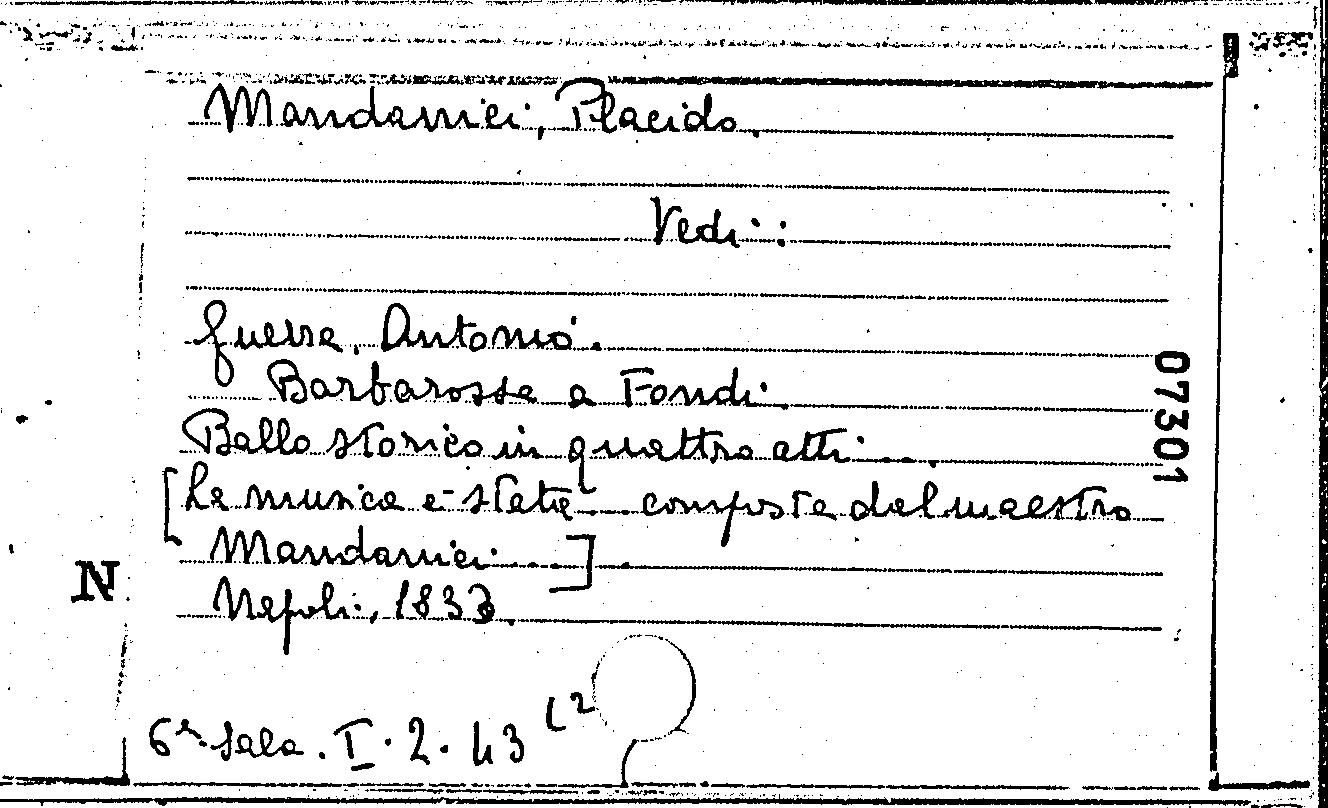 Mandanici, Placido.
Vedi:
Guerra, Antonio.
Barbarossa a Fondi.
Ballo storico in quattro atti....
[La musica è stata... composta dal maestro
Mandanici....].
Napoli, 1833.
6ª Sala. I. 2. 43 (2
N
07301